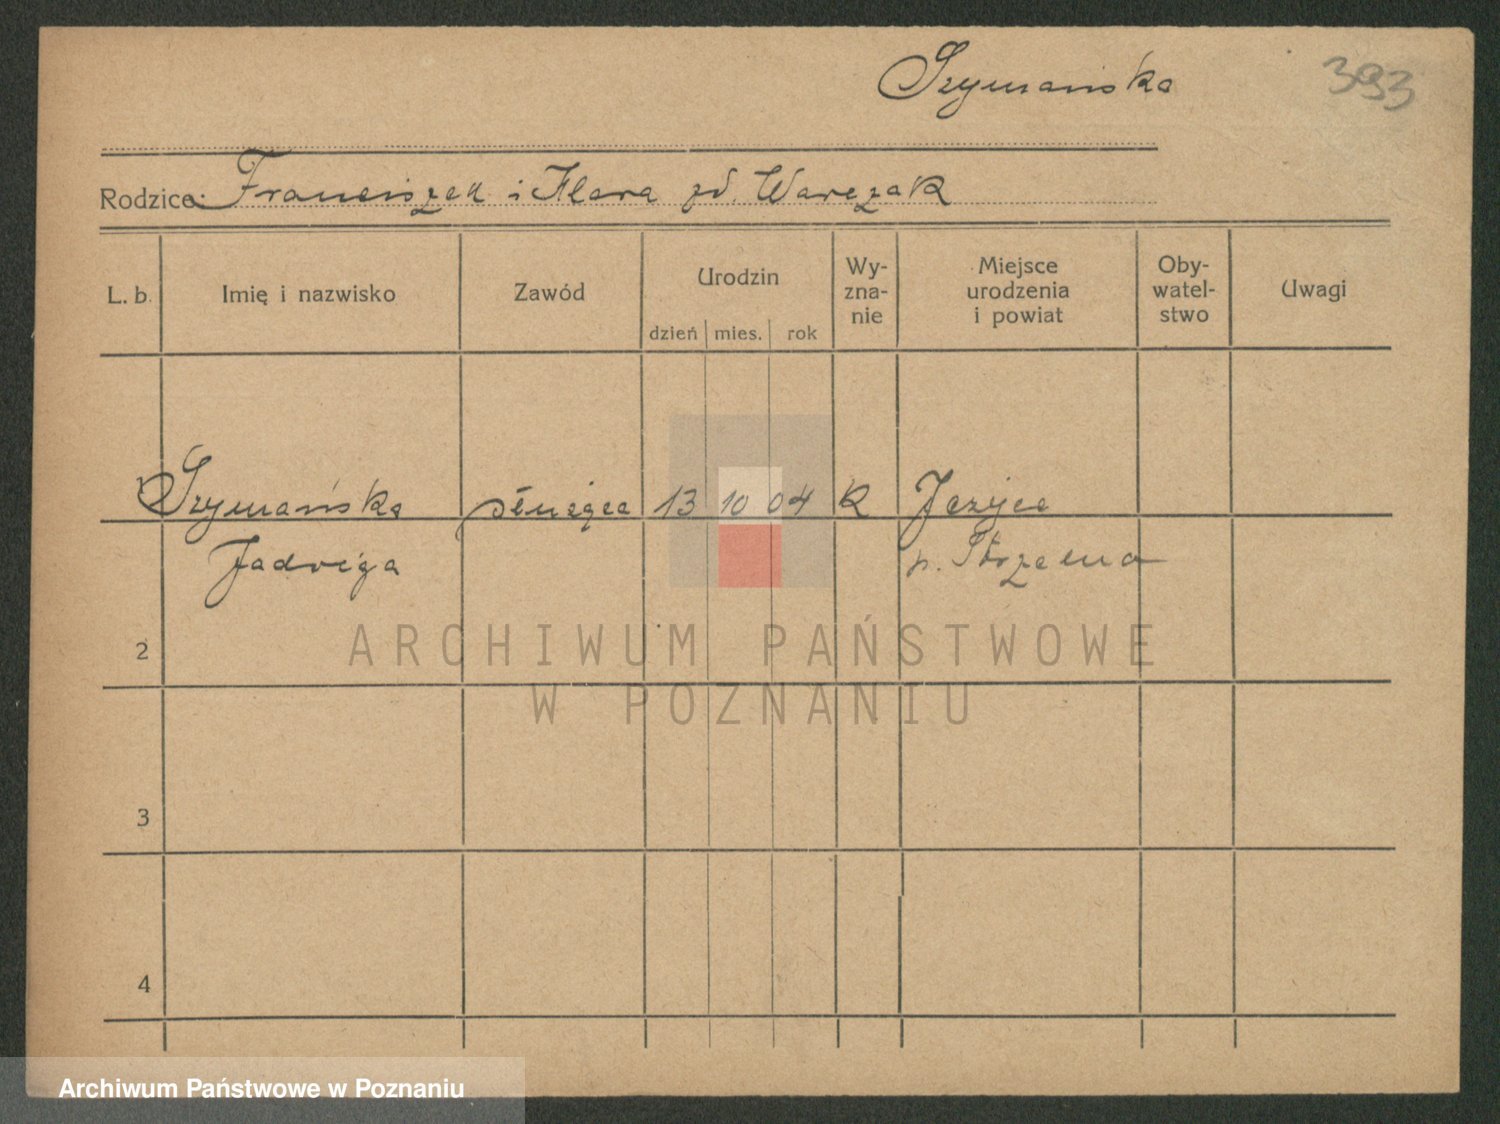 Szymańska
393
Rodzice: Franciszek i Klara zd. Warczak
L. b.
Imię i nazwisko
Zawód
Urodzin
dzień mies. rok
Wy-
zna-
nie
Miejsce
urodzenia
i powiat
Oby-
watel-
stwo
Uwagi
1 Szymańska służąca 13 10 04 K
Jadwiga p. Strzelno
2
3
4
ARCHIWUM PAŃSTWOWE
W POZNANIU
Archiwum Państwowe w Poznaniu